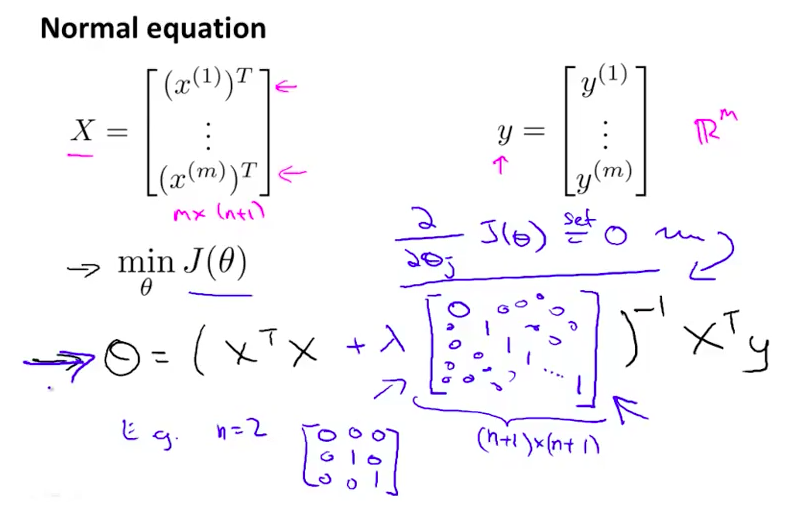 Normal equation
X = [ (x^(1))^T ⋮ (x^(m))^T ] ← ←
m × (n+1)
y = [ y^(1) ⋮ y^(m) ] ℝ^m
↑
∂/∂θ_j J(θ) set = 0
→ min_θ J(θ)
→ θ = ( X^T X + λ [ 0 1 1 1 ⋱ 1 ] )^-1 X^T y
(n+1)×(n+1)
E.g. n=2 [ 0 0 0
0 1 0
0 0 1 ]